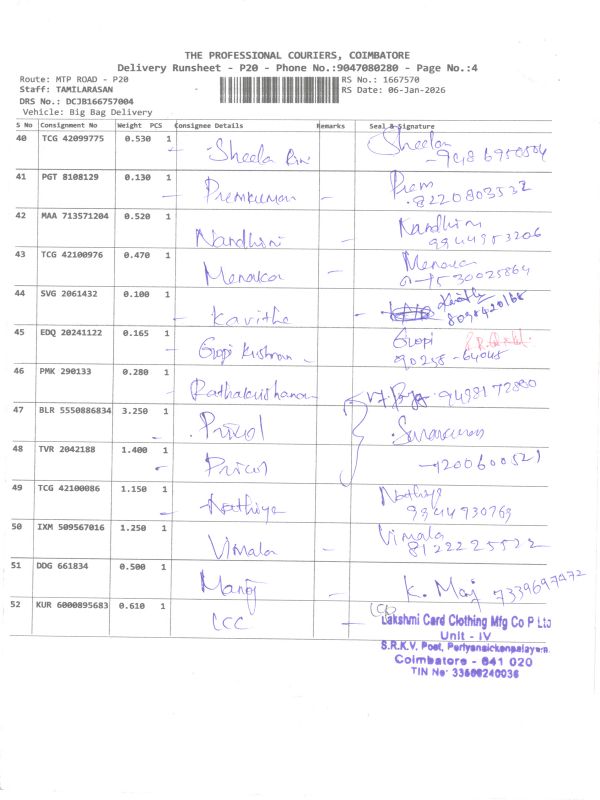 THE PROFESSIONAL COURIERS, COIMBATORE
Delivery Runsheet - P20 - Phone No.:9047080280 - Page No.:4
Route: MTP ROAD - P20
RS No.: 1667570
Staff: TAMILARASAN
RS Date: 06-Jan-2026
DRS No.: DCJB166757004
Vehicle: Big Bag Delivery
S No Consignment No Weight PCS Consignee Details Remarks Seal & Signature
40 TCG 42099775 0.530 1 Sheela Sheelan
41 PGT 8108129 0.130 1 Premkumar - Prem
8220803532
42 MAA 713571204 0.520 1 Nandhini - Nandhini
9944953206
43 TCG 42100976 0.470 1 Menaka - Menaka
44 SVG 2061432 0.100 1 Kavitha - Kavitha
8098420168
45 EDQ 20241122 0.165 1 Gopi Krishnan - Gopi
90255-64045
46 PMK 290133 0.280 1 Rathakrishanan 9498172880
47 BLR 5550886834 3.250 1 Pricol Saravanan
48 TVR 2042188 1.400 1 Pricol 7200600521
49 TCG 42100086 1.150 1 Nathiya Nathiya
9344930769
50 IXM 509567016 1.250 1 Vimala - Vimala
8122225522
51 DDG 661834 0.500 1 Manoj - K. Manoj 7339697472
52 KUR 6000895683 0.610 1 LCC - LCC
Lakshmi Card Clothing Mfg Co P Ltd
Unit - IV
S.R.K.V. Post, Periyanaickenpalayam
Coimbatore - 641 020
TIN No